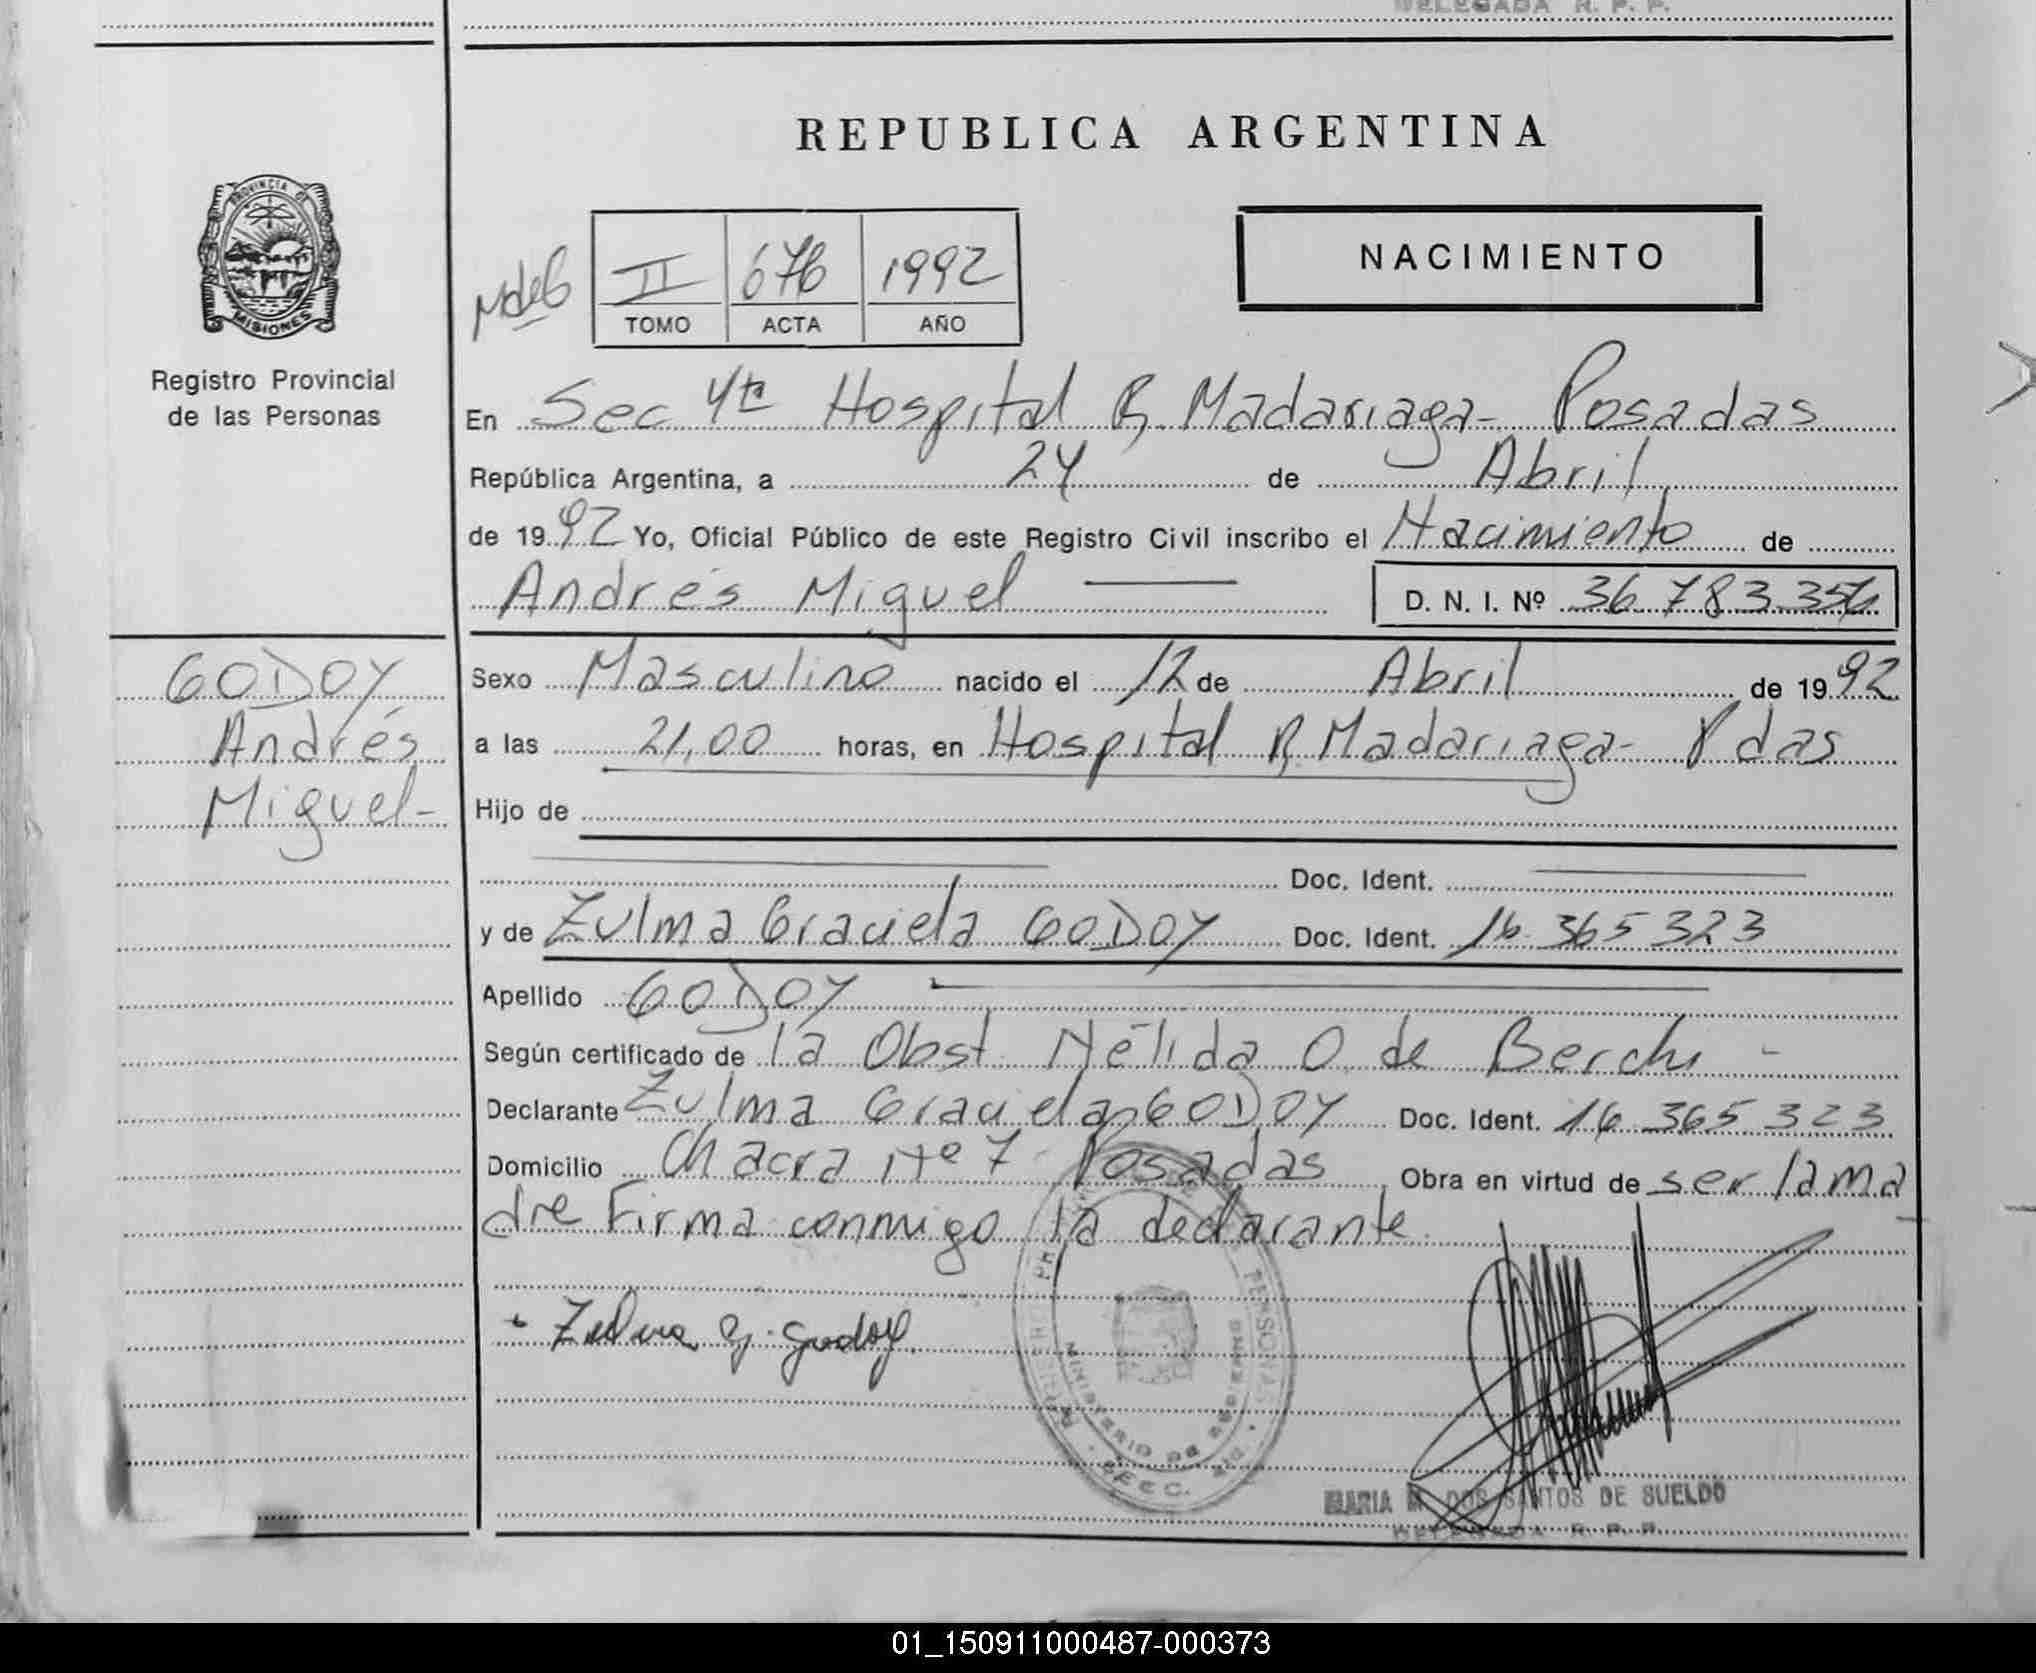 DELEGADA R. P. P.
REPUBLICA ARGENTINA
PROVINCIA DE
MISIONES
Registro Provincial
de las Personas
II 676 1992
TOMO ACTA AÑO
NACIMIENTO
En Sec 4ta Hospital R. Madariaga- Posadas
República Argentina, a 24 de Abril
de 1992 Yo, Oficial Público de este Registro Civil inscribo el Nacimiento de
Andrés Miguel D. N. I. Nº 36 783 356
GODOY
Andrés
Miguel-
Sexo Masculino nacido el 12 de Abril de 1992
a las 21,00 horas, en Hospital R. Madariaga- Pdas
Hijo de
Doc. Ident.
y de Zulma Graciela GODOY Doc. Ident. 16 365 323
Apellido GODOY
Según certificado de la Obst. Nélida O. de Berchi -
Declarante Zulma Graciela GODOY Doc. Ident. 16 365 323
Domicilio Chacra Nº 7 Posadas Obra en virtud de ser la ma
dre Firma conmigo la declarante.
Zulma G. Godoy
MINISTERIO DE GOBIERNO
PERSONAS
MARIA M. DOS SANTOS DE SUELDO
DELEGADA R. P. P.
01_150911000487-000373